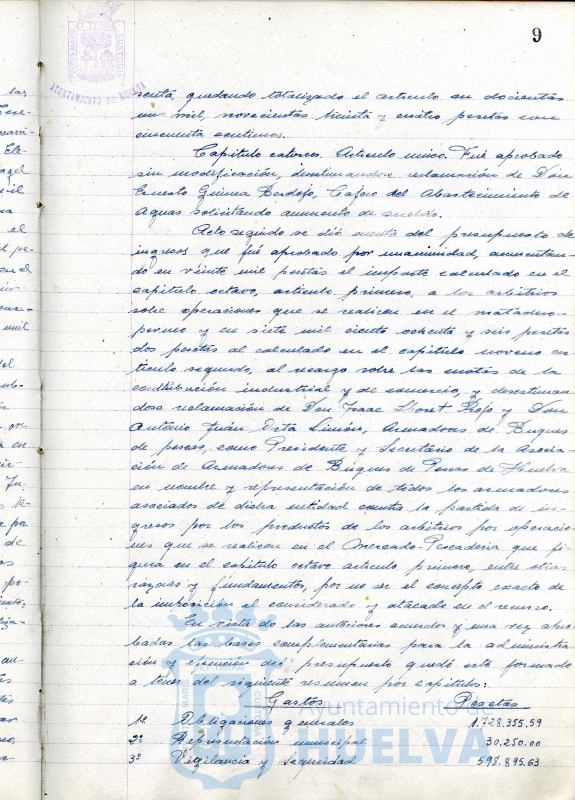 9
AYUNTAMIENTO DE HUELVA
senta, quedando totalizado el artículo en doscientas
un mil, novecientas treinta y cuatro pesetas con
cincuenta centimos.
Capítulo catorce. Artículo único. Fué aprobado
sin modificación, desestimandose reclamación de Don
Ernesto Berdejo, Cajero del Abastecimiento de
Aguas solicitando aumento de sueldo.
Acto seguido se dió cuenta del presupuesto de
ingresos que fué aprobado por unanimidad, aumentan-
do en veinte mil pesetas el importe calculado en el
capítulo octavo, artículo primero, a los arbitrios
sobre operaciones que se realicen en el matadero
y en siete mil ciento ochenta y seis pesetas
dos pesetas al calculado en el capítulo noveno ar-
tículo segundo, al recargo sobre las cuotas de la
contribución industrial y de comercio, y desestiman
dose reclamación de Don Isaac y Don
Antonio Juán Vita Limón, Armadores de Buques
de pescas, como Presidente y Secretario de la Asocia-
ción de Armadores de Buques de Pescas de Huelva
en nombre y representación de todos los armadores
asociados de dicha entidad contra la partida de in-
gresos por los productos de los arbitrios por operacio-
nes que se realicen en el Mercado-Pescaderia que fi-
gura en el capítulo octavo artículo primero, entre otras
razones y fundamentos, por no ser el concepto exacto de
la imposición el considerado y atacado en el recurso.
En vista de los anteriores acuerdos y una vez apro
badas las bases complementarias para la administra-
ción y ejecución del presupuesto quedó este formado
a tenor del siguiente resumen por capítulos:
Gastos Pesetas
1º Obligaciones generales 1.728.355,59
2º Representación municipal 30.250.00
3º Vigilancia y seguridad 598.895.63
Ayuntamiento de
HUELVA